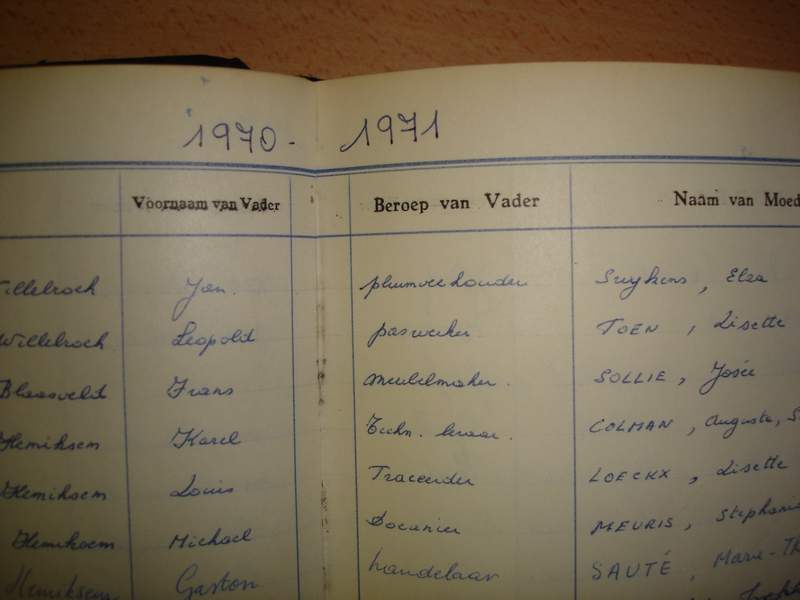 1970 - 1971
Voornaam van Vader Beroep van Vader Naam van Moed
Willebroek Jan. pluimveehouder Suykens, Elza
Willebroek Leopold paswerker TOEN, Lisette
Blaasveld Frans meubelmaker. SOLLIE, Josée
Hemiksem Karel Techn. leraar. COLMAN, Augusta, S
Hemiksem Louis Traceerder LOECKX, Lisette
Hemiksem Michael Docunier MEURIS, Stephanie
Hemiksem Gaston handelaar SAUTÉ, Marie-Th